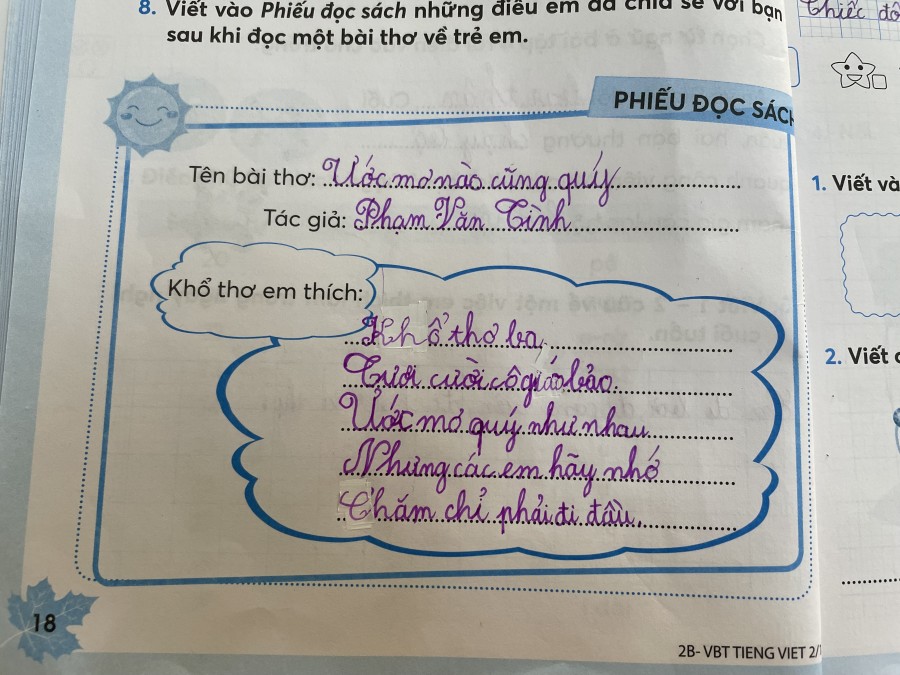 8. Viết vào Phiếu đọc sách những điều em đã chia sẻ với bạn
sau khi đọc một bài thơ về trẻ em.
Chiếc đồ
PHIẾU ĐỌC SÁCH
Tên bài thơ: Ước mơ nào cũng quý
Tác giả: Phạm Văn Tình
Khổ thơ em thích:
Khổ thơ ba
Tươi cười cô giáo bảo
Ước mơ quý như nhau
Nhưng các em hãy nhớ
Chăm chỉ phải đi đầu.
18
2B- VBT TIENG VIET 2/
1. Viết và
2. Viết